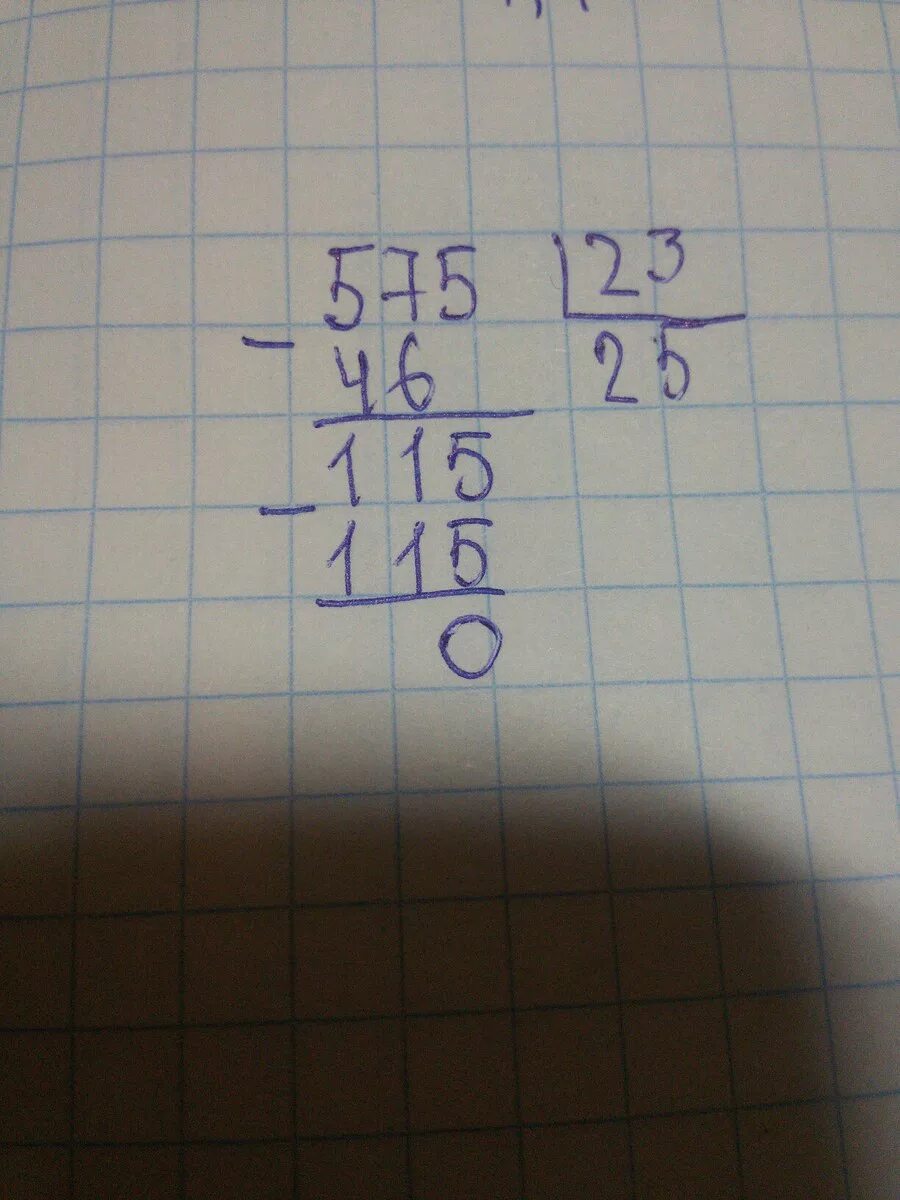 575 23
- 46 25
115
- 115
0